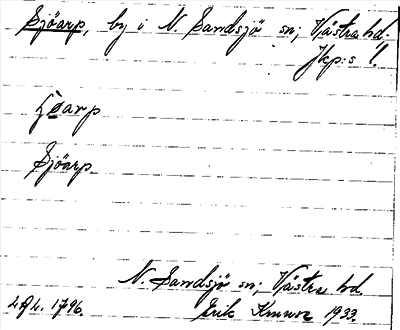 Sjöarp, by i N. Sandsjö sn; Västra hd.
Jkp:s l.
Sjöarp
N. Sandsjö sn; Västra hd.
1796. Erik 1933.